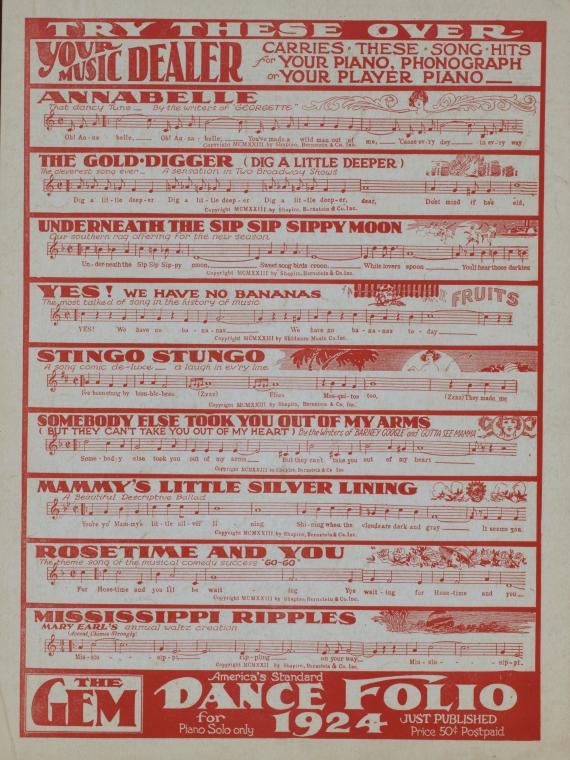 TRY THESE OVER
YOUR MUSIC DEALER
CARRIES · THESE · SONG · HITS
for YOUR PIANO, PHONOGRAPH
or YOUR PLAYER PIANO
ANNABELLE
That dancy Tune — By the writers of "GEORGETTE"
Oh! An-na belle, Oh! An-na-belle, You've made a wild man out of me, 'Cause ev'ry day in ev'ry way
Copyright MCMXXIII by Shapiro, Bernstein & Co. Inc.
THE GOLD-DIGGER (DIG A LITTLE DEEPER)
The cleverest song ever — A sensation in Two Broadway Shows
Dig a lit-tle deep-er Dig a lit-tle deep-er Dig a lit-tle deep-er, dear, Don't mind if he's old,
Copyright MCMXXIII by Shapiro, Bernstein & Co. Inc.
UNDERNEATH THE SIP SIP SIPPY MOON
Our southern rag offering for the new season
Un-derneath the Sip Sip Sip-py moon, Sweet song birds croon, While lovers spoon You'll hear those darkies
Copyright MCMXXIII by Shapiro, Bernstein & Co. Inc.
YES! WE HAVE NO BANANAS
FRUITS
The most talked of song in the history of music
YES! We have no ba-na-nas We have no ba-na-nas to-day
Copyright MCMXXIII by Skidmore Music Co. Inc.
STINGO STUNGO
A song comic de-luxe — a laugh in ev'ry line
I've been stung by bum-ble-bees (Zzzz) Flies Mos-qui-tos too, (Zzzz) They made me
Copyright MCMXXIII by Shapiro, Bernstein & Co. Inc.
SOMEBODY ELSE TOOK YOU OUT OF MY ARMS
(BUT THEY CAN'T TAKE YOU OUT OF MY HEART) By the Writers of BARNEY GOOGLE and GOTTA SEE MAMMA
Some-bod-y else took you out of my arms But they can't take you out of my heart
Copyright MCMXXIII by Shapiro, Bernstein & Co. Inc.
MAMMY'S LITTLE SILVER LINING
A Beautiful Descriptive Ballad
You're yo' Mam-my's lit-tle sil-ver li - ning Shi-ning when the clouds are dark and gray It seems
Copyright MCMXXIII by Shapiro, Bernstein & Co. Inc.
ROSETIME AND YOU
The theme song of the musical comedy success "GO-GO"
For Rose-time and you I'll be wait - ing Yes wait-ing for Rose-time and you
Copyright MCMXXIII by Shapiro, Bernstein & Co. Inc.
MISSISSIPPI RIPPLES
MARY EARL'S annual waltz creation
Mis-sis - sip-pi rip-pling on your way Mis-sis - sip-pi
Copyright MCMXXIII by Shapiro, Bernstein & Co. Inc.
THE GEM
America's Standard
DANCE FOLIO
for
Piano Solo only
1924
JUST PUBLISHED
Price 50¢ Postpaid